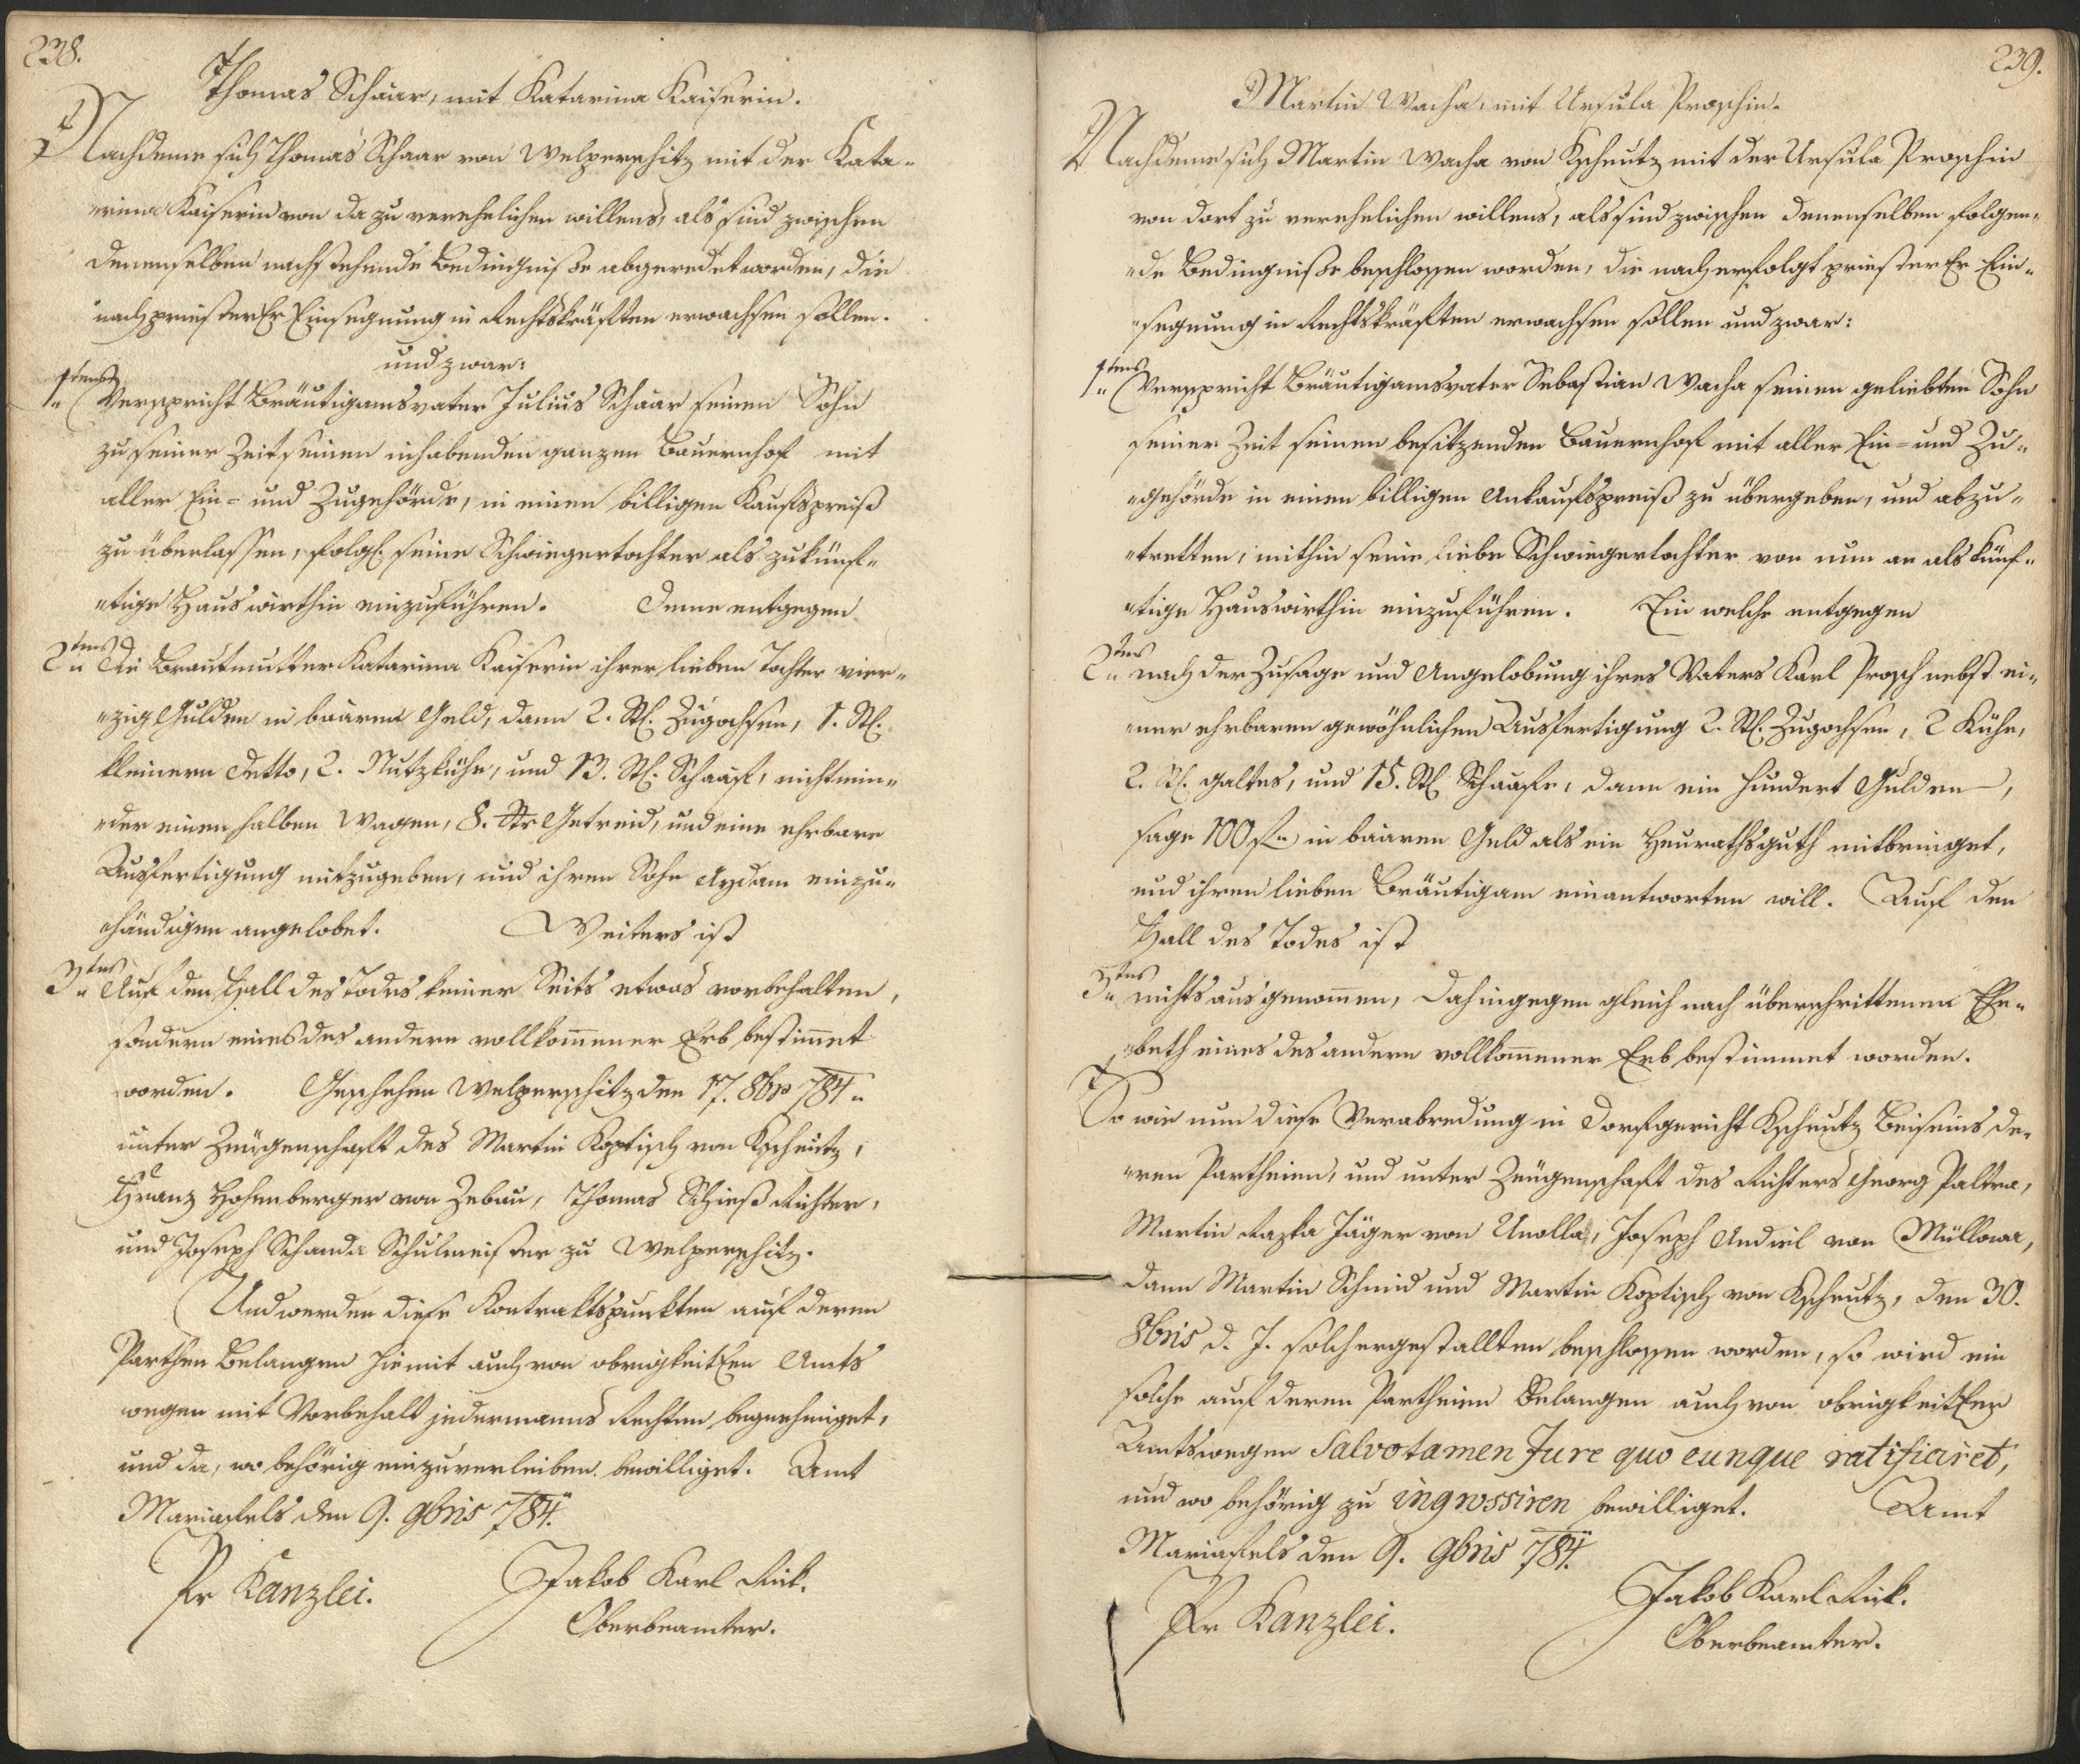 238.
Thomas Schaar, mit Katarina Kaiserin.
Nachdeme sich Thomas Schaar von Welperschitz mit der Kata-
"rina Kaiserin von da zu verehelichen willens, als sind zwischen
denenselben nachstehende Bedingnisse abgeredet worden, die
nach priesterlr Einsegnung in Rechtskräften erwachsen sollen.
und zwar:
1tens Verspricht Bräutigamsvater Julius Schaar seinen Sohn
zu seiner Zeit seinen inhabenden ganzen Bauernhof mit
aller Ein- und Zugehörde, in einen billigen Kaufspreiß
zu überlassen, folgl. seine Schwiegertochter als zukünf-
"tige Hauswirthin einzuführen. Deme entgegen
2tens Die Brautmutter Katarina Kaiserin ihrer lieben Tochter vier-
"zig Gulden in baaren Geld, dann 2. St. Zugochsen, 1. St.
kleinern Detto, 2. Nutzkühe, und 13. St. Schaaf, nicht min-
"der einen halben Wagen, 8. Str Getreid, und eine ehrbare
Ausfertigung mitzugeben, und ihren Sohn Aydam einzu-
händigen angelobet. Weiters ist
3tens Auf den Fall des Todes keiner Seits etwas vorbehalten,
sondern eines des andern vollkom̄ener Erb bestim̄et
worden. Geschehen Welperschitz den 17. 8br 784"
unter Zeugenschaft des Martin Koptisch von Kscheutz,
Franz Hohenberger von Zebau, Thomas Schieß Richter,
und Joseph Schanda Schulmeister zu Welperschitz.
Und werden diese Kontraktspunkten auf deren
Parthen Belangen hiemit auch von obrigkeitlen Amts
wegen mit Vorbehalt jedermanns Rechten begnehmiget,
und da, wo behörig einzuverleiben bewilliget. Amt
Mariafels den 9. 9bris 784.
Pr Kanzlei. Jakob Karl Rick.
Oberbeamter.
239.
Martin Wacha, mit Ursula Proschin.
Nachdeme sich Martin Wacha von Kscheutz mit der Ursula Proschin
von dort zu verehelichen willens, als sind zwischen denenselben folgen-
"de Bedingnisse beschlossen worden, die nach erfolgt priesterlr Ein-
"segnung in Rechtskräften erwachsen sollen und zwar:
1tens Verspricht Bräutigamsvater Sebastian Wacha seinen geliebten Sohn
seiner Zeit seinen besitzenden Bauernhof mit aller Ein- und Zu-
"gehörde in einen billigen Ankaufspreiß zu übergeben, und abzu-
"tretten, mithin seine liebe Schwiegertochter von nun an als künf-
"tige Hauswirthin einzuführen. Ein welche entgegen
2tens nach der Zusage und Angelobung ihres Vaters Karl Prosch nebst ei-
"ner ehrbaren gewöhnlichen Ausfertigung 2. St. Zugochsen, 2 Kühe,
2. St. galtes, und 15. St. Schaafe, dann ein hundert Gulden,
sage 100 f" in baaren Geld als ein Heurathsguth mitbringet,
und ihren lieben Bräutigam einantworten will. Auf den
Fall des Todes ist
3tens nichts ausgenom̄en, dahingegen gleich nach überschrittenen Ehe-
"beth eines des andern vollkom̄ener Erb bestimmet worden.
So wie nun diese Verabredung in Dorfgericht Kscheutz Beiseins de-
"ren Partheien, und unter Zeugenschaft des Richters Georg Paltra,
Martin Razka Jäger von Unolla, Joseph Andiel von Müllowa,
dann Martin Schmid und Martin Koptisch von Kscheutz, den 30.
8bris d. J. solchergestallten beschlossen worden, so wird ein
solche auf deren Partheien Belangen auch von obrigkeitler
Amtswegen Salvo tamen Jure quo cunque ratificiret,
und wo behörig zu ingrossiren bewilliget. Amt
Mariafels den 9. 9bris 784.
Pr Kanzlei. Jakob Karl Rick.
Oberbeamter.